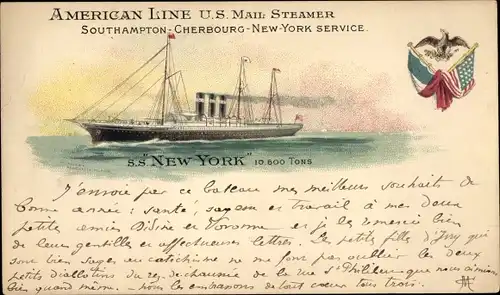 AMERICAN LINE U.S. MAIL STEAMER
SOUTHAMPTON-CHERBOURG-NEW-YORK SERVICE.
S.S. "NEW YORK" 10.800 TONS
J'envoie par ce bateau mes meilleurs souhaits de
bonne année: santé, sagesse et travail à mes deux
petites amies et Yvonne et je les remercie bien
de leurs gentilles et affectueuses lettres. Les petites filles d'Ivry qui
sont bien sages au catéchisme ne me font pas oublier les deux
petits du rez-de-chaussée de la rue St Philibert que nous aimions
bien quand même. - Nous les embrassons de tout cœur tous trois.